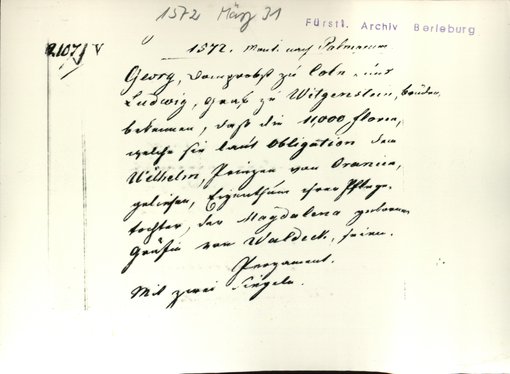 1572 März 31
Fürstl. Archiv Berleburg
2107 V
1572. Mont. nach Palmarum
Georg, Domprobst zu Coln und
Ludwig, Graf zu Witgenstein, beuden
bekennen, daß die 11,000 florin,
welche sie laut Obligation dem
Wilhelm, Prinzen von Oranien,
geliehen, Eigenthum ihrer Pflege-
tochter, der Magdalena geborenen
Gräfin von Waldeck, seien.
Pergament.
Mit zwei Siegeln.